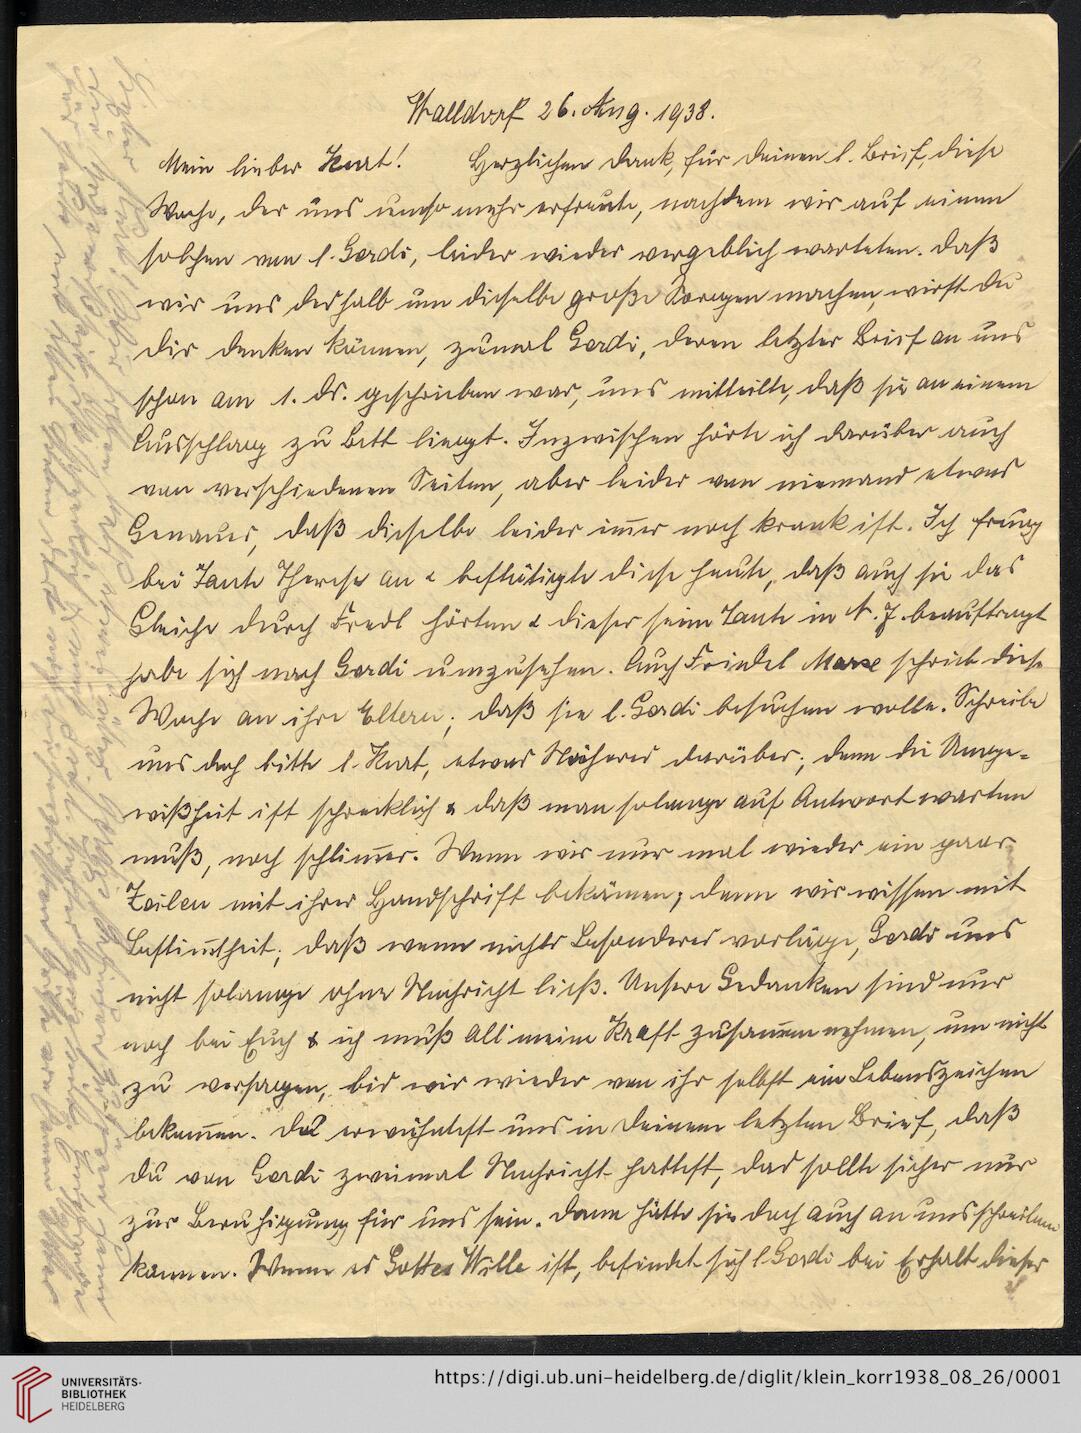 Walldorf 26. Aug. 1938.
Mein lieber Kurt! Herzlichen Dank, für Deinen l. Brief, diese
Woche, der uns umso mehr erfreute, nachdem wir auf einen
solchen von l. Gerdi, leider wieder vergeblich warteten. Daß
wir uns deshalb um dieselbe große Sorgen machen, wirst Du
Dir denken können, zumal Gerdi, deren letzter Brief an uns
schon am 1. ds. geschrieben war, uns mitteilte, daß sie an einem
Ausschlag zu Bett liegt. Inzwischen hörte ich darüber auch
von verschiedenen Seiten, aber leider von niemand etwas
Genaues, daß dieselbe leider im̄er noch krank ist. Ich frug
bei Tante Therese an & bestätigte diese heute, daß auch sie das
Gleiche durch Fredl hörten & dieser seine Tante in N. J. beauftragt
habe sich nach Gerdi umzusehen. Auch Friedel Marx schrieb diese
Woche an ihre Eltern, daß sie l. Gerdi besuchen wolle. Schreibe
uns doch bitte l. Kurt, etwas Näheres darüber; denn die Unge-
wißheit ist schrecklich & daß man solange auf Antwort warten
muß, noch schlim̄er. Wenn wir nur mal wieder ein paar
Zeilen mit ihrer Handschrift bekämen; denn wir wissen mit
Bestim̄theit, daß wenn nichts Besonderes vorläge, Gerdi uns
nicht solange ohne Nachricht ließ. Unsere Gedanken sind nur
noch bei Euch & ich muß all meine Kraft zusammen nehmen, um nicht
zu versagen, bis wir wieder von ihr selbst ein Lebenszeichen
bekom̄en. Du erwähntest uns in Deinem letzten Brief, daß
Du von Gerdi zweimal Nachricht hattest, das sollte sicher nur
zur Beruhigung für uns sein. Dann hätte sie doch auch an uns schreiben
können. Wenn es Gottes Wille ist, befindet sich l. Gerdi bei Erhalt dieser
UNIVERSITÄTS-
BIBLIOTHEK
HEIDELBERG
https://digi.ub.uni-heidelberg.de/diglit/klein_korr1938_08_26/0001